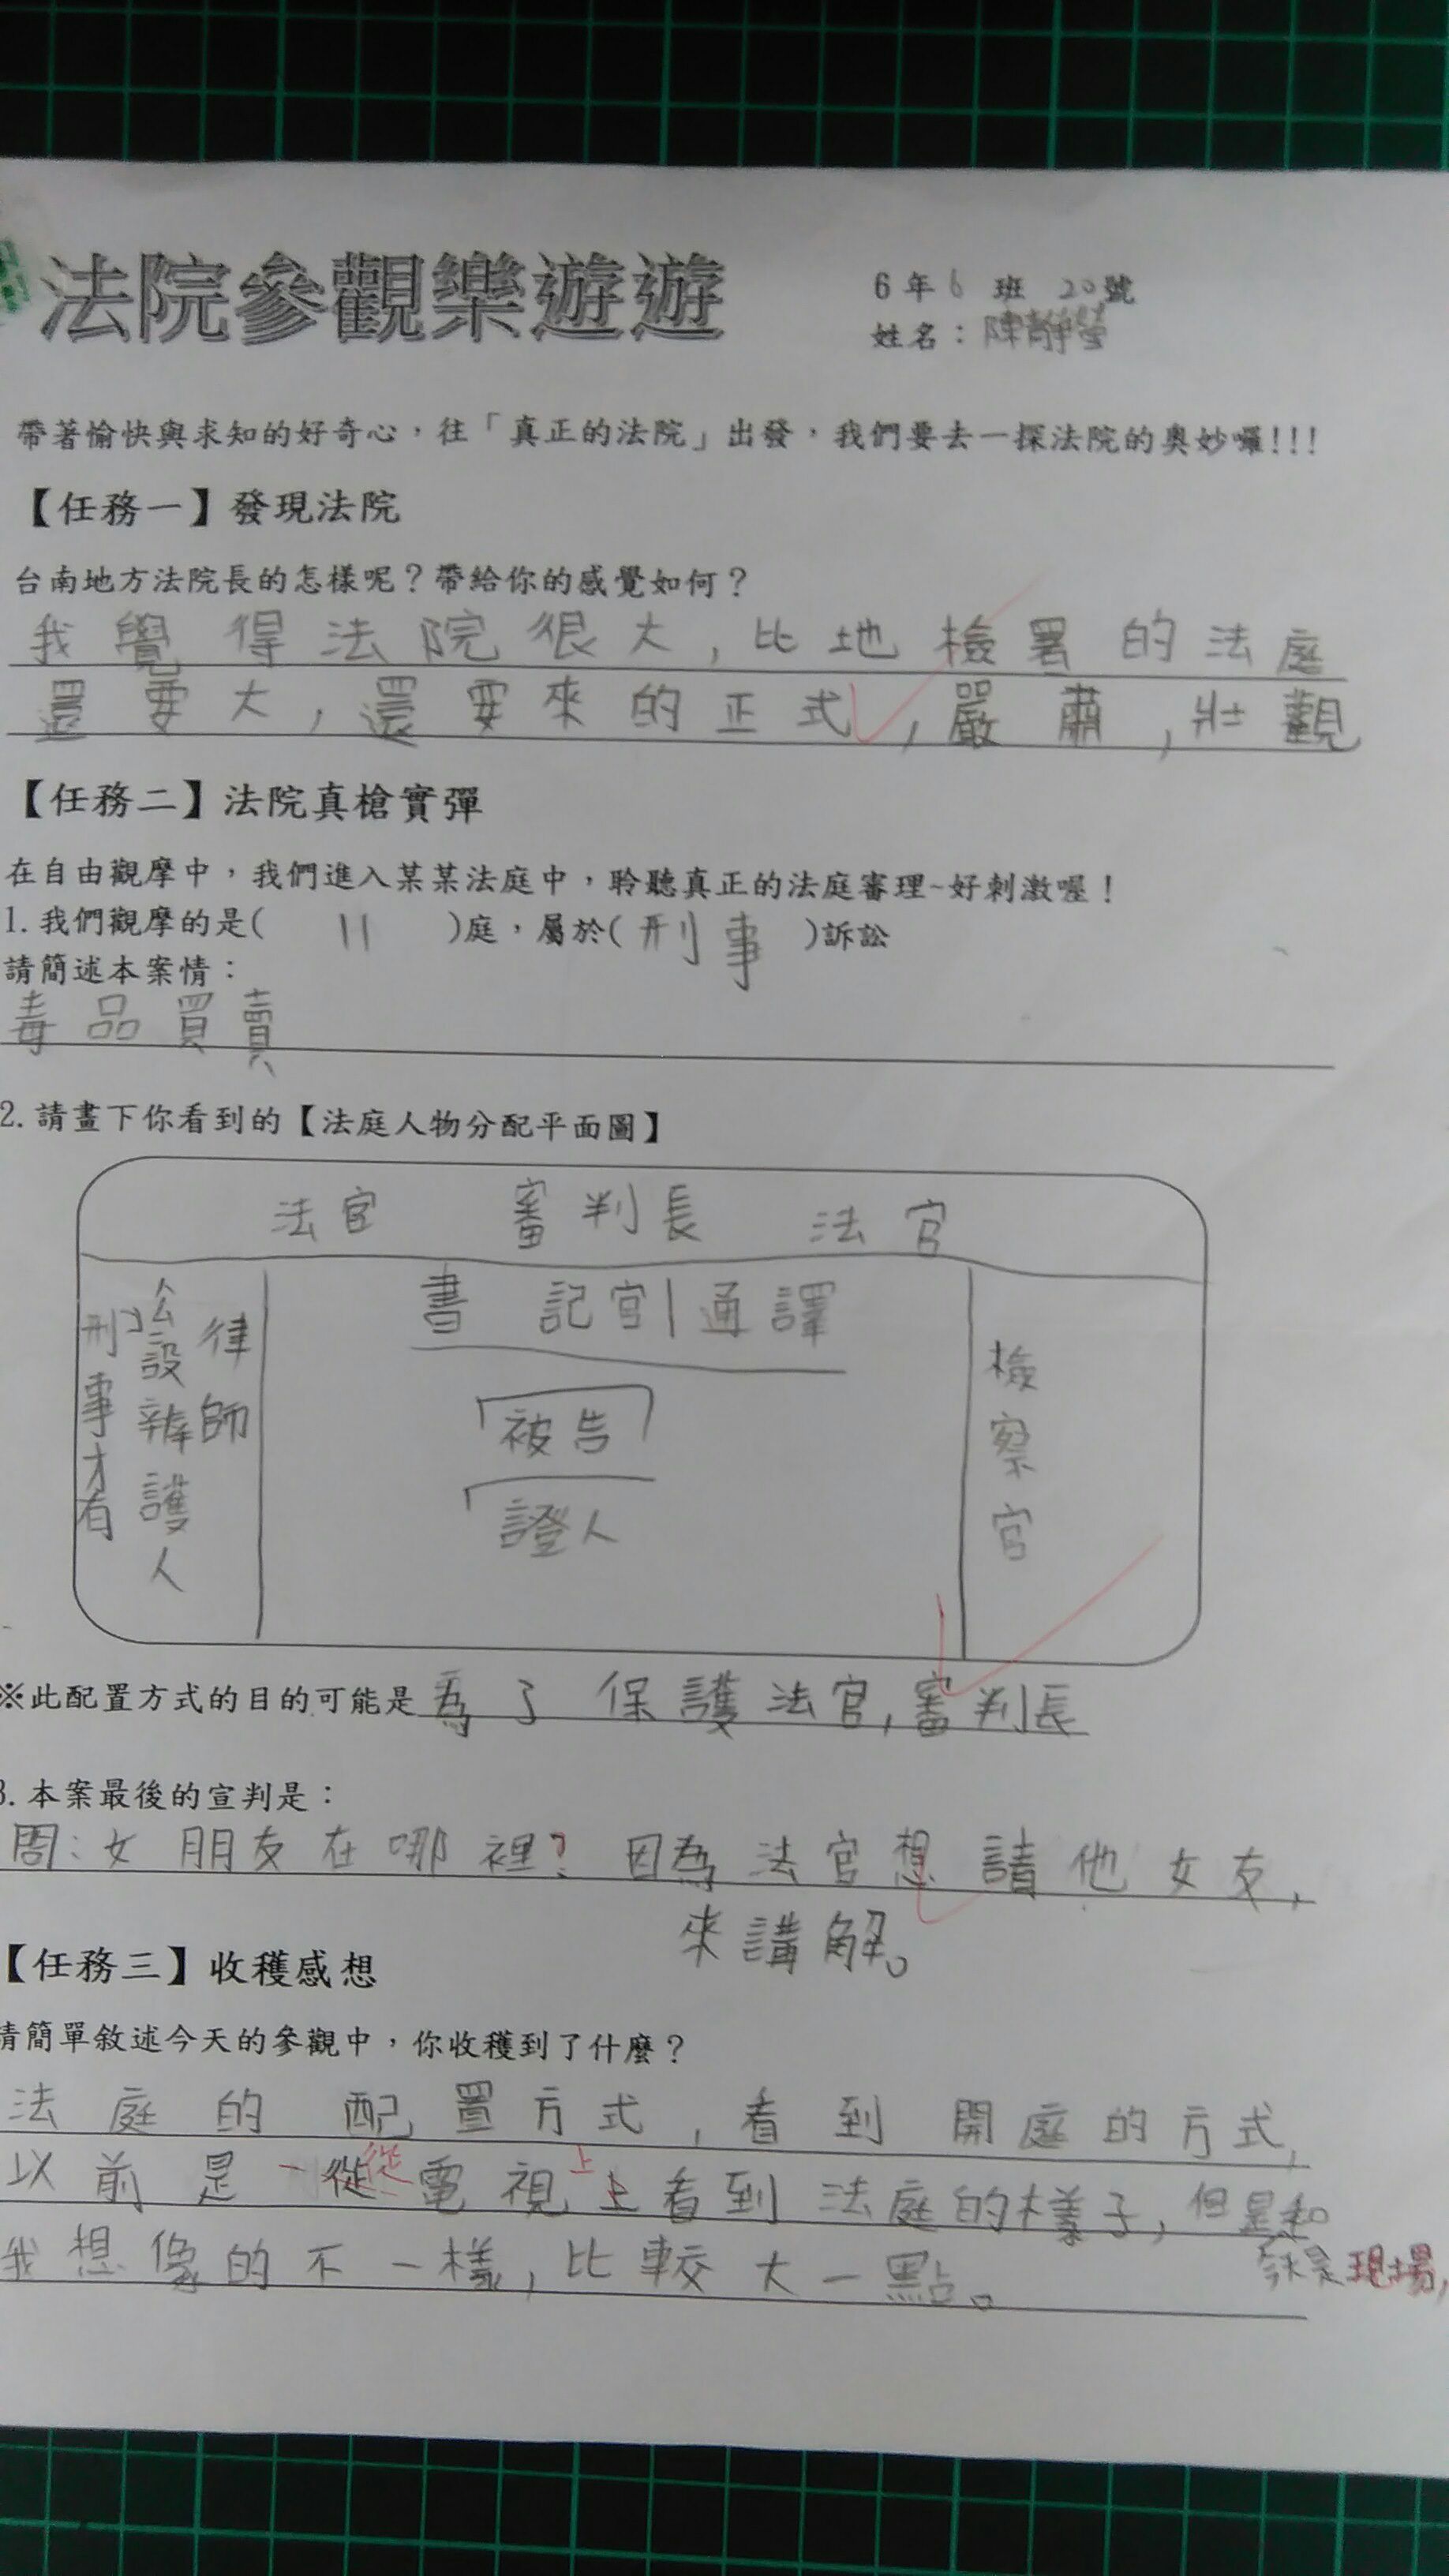 法院參觀樂遊遊
6年6班 20號
姓名：陳靜瑩
帶著愉快與求知的好奇心，往「真正的法院」出發，我們要去一探法院的奧妙囉!!!
【任務一】發現法院
台南地方法院長的怎樣呢？帶給你的感覺如何？
我覺得法院很大，比地檢署的法庭
還要大，還要來的正式，嚴肅，壯觀
【任務二】法院真槍實彈
在自由觀摩中，我們進入某某法庭中，聆聽真正的法庭審理~好刺激喔！
1.我們觀摩的是( 11 )庭，屬於( 刑事 )訴訟
請簡述本案情：
毒品買賣
2.請畫下你看到的【法庭人物分配平面圖】
法官 審判長 法官
書記官|通譯
刑事才有
公設辯護人
律師
被告
證人
檢察官
※此配置方式的目的可能是為了保護法官,審判長
3.本案最後的宣判是：
問:女朋友在哪裡?因為法官想請他女友,
來講解。
【任務三】收穫感想
請簡單敘述今天的參觀中，你收穫到了什麼？
法庭的配置方式,看到開庭的方式,
以前是從從電視上上看到法庭的樣子,但是和
現場,
我想像的不一樣,比較大一點。